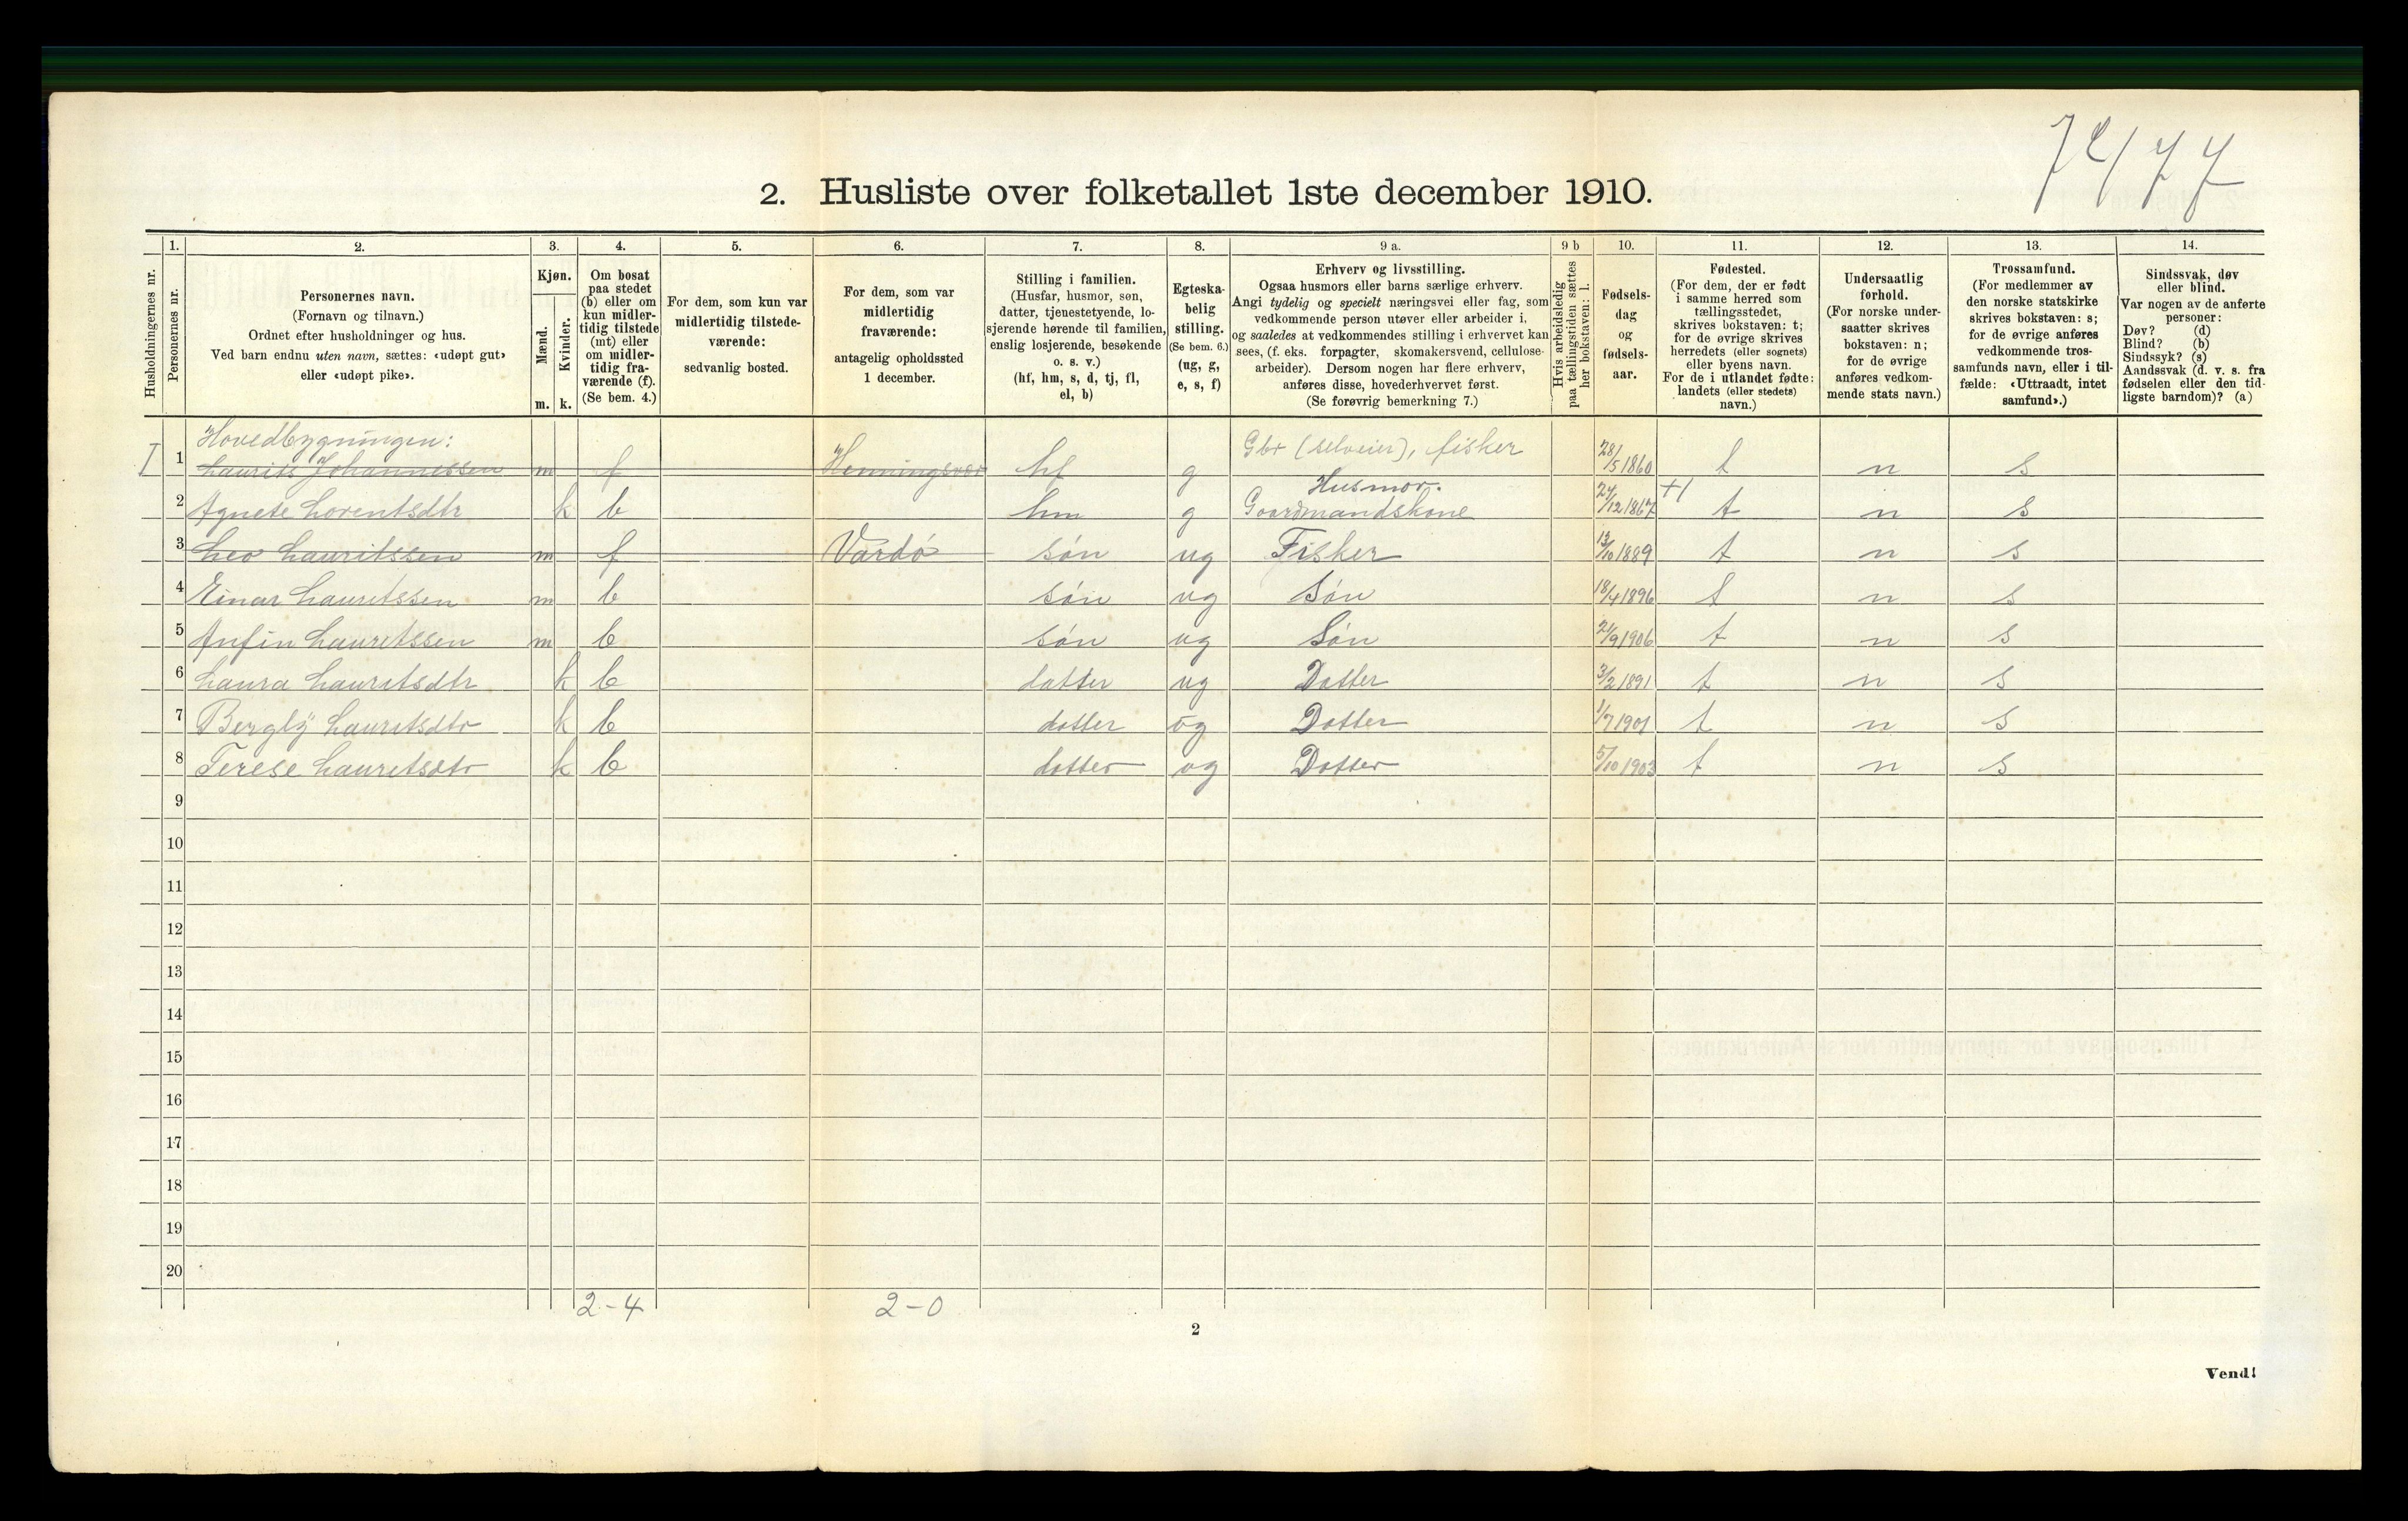 72/77
2. Husliste over folketallet 1ste december 1910.
Husholdningernes nr.
1. Personernes nr.
2. Personernes navn. (Fornavn og tilnavn.) Ordnet efter husholdninger og hus. Ved barn endnu uten navn, sættes: «udøpt gut» eller «udøpt pike».
3. Kjøn. Mænd. m. Kvinder. k.
4. Om bosat paa stedet (b) eller om kun midlertidig tilstede (mt) eller om midlertidig fraværende (f). (Se bem. 4.)
5. For dem, som kun var midlertidig tilstedeværende: sedvanlig bosted.
6. For dem, som var midlertidig fraværende: antagelig opholdssted 1 december.
7. Stilling i familien. (Husfar, husmor, søn, datter, tjenestetyende, losjerende hørende til familien, enslig losjerende, besøkende o. s. v.) (hf, hm, s, d, tj, fl, el, b)
8. Egteskabelig stilling. (Se bem. 6.) (ug, g, e, s, f)
9 a. Erhverv og livsstilling. Ogsaa husmors eller barns særlige erhverv. Angi tydelig og specielt næringsvei eller fag, som vedkommende person utøver eller arbeider i, og saaledes at vedkommendes stilling i erhvervet kan sees, (f. eks. forpagter, skomakersvend, cellulosearbeider). Dersom nogen har flere erhverv, anføres disse, hovederhvervet først. (Se forøvrig bemerkning 7.)
9 b Hvis arbeidsledig paa tællingstiden sættes her bokstaven: l.
10. Fødselsdag og fødselsaar.
11. Fødested. (For dem, der er født i samme herred som tællingsstedet, skrives bokstaven: t; for de øvrige skrives herredets (eller sognets) eller byens navn. For de i utlandet fødte: landets (eller stedets) navn.)
12. Undersaatlig forhold. (For norske undersaatter skrives bokstaven: n; for de øvrige anføres vedkommende stats navn.)
13. Trossamfund. (For medlemmer av den norske statskirke skrives bokstaven: s; for de øvrige anføres vedkommende trossamfunds navn, eller i tilfælde: «Uttraadt, intet samfund».)
14. Sindssvak, døv eller blind. Var nogen av de anførte personer: Døv? (d) Blind? (b) Sindssyk? (s) Aandssvak (d. v. s. fra fødselen eller den tidligste barndom)? (a)
Hovedbygningen:
I 1 Laurits Johannessen m f Henningsvær hf g Gbr (selveier), fisker 28/5 1860 t n s
Husmor.
2 Agnete Lorentsdtr k b hm g Gaardmandskone 24/12 1867 +1 t n s
3 Leo Lauritssen m f Vardö søn ug Fisker 13/10 1889 t n s
4 Einar Lauritssen m b søn ug Søn 18/4 1896 t n s
5 Anfin Lauritssen m b søn ug Søn 21/9 1906 t n s
6 Laura Lauritsdtr k b datter ug Datter 3/2 1891 t n s
7 Bergly Lauritsdtr k b datter ug Datter 1/7 1901 t n s
8 Terese Lauritsdtr k b datter ug Datter 5/10 1903 t n s
9
10
11
12
13
14
15
16
17
18
19
20
2-4 2-0
2
Vend!